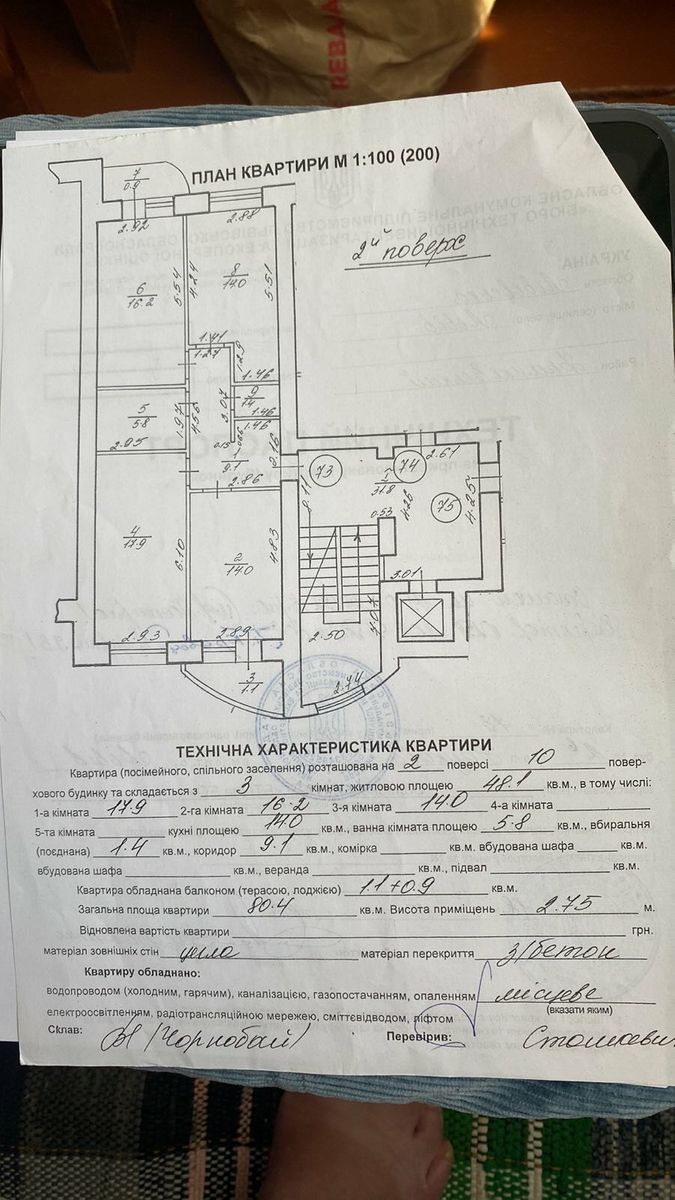 REBA/A
ПЛАН КВАРТИРИ М 1:100 (200)
2й поверх
7
0.9
2.92
2.88
6
16.2
5.54
4.24
8
14.0
5.51
1.41
1.27
1.29
1.46
5
5.8
1.97
4.56
3.07
9
1.4
1.46
1.46
2.95
0.15
0.86
1
9.1
2.16
2.86
73
74
2.61
I
31.8
75
4.25
8.11
4.26
0.53
4
17.9
6.10
2
14.0
4.83
3.01
2.50
3.07
2.93
2.89
3
1.1
2.74
ТЕХНІЧНА ХАРАКТЕРИСТИКА КВАРТИРИ
Квартира (посімейного, спільного заселення) розташована на 2 поверсі 10 повер-
хового будинку та складається з 3 кімнат, житловою площею 48.1 кв.м., в тому числі:
1-а кімната 17.9 2-га кімната 16.2 3-я кімната 14.0 4-а кімната
5-та кімната кухні площею 14.0 кв.м., ванна кімната площею 5.8 кв.м., вбиральня
(поєднана) 1.4 кв.м., коридор 9.1 кв.м., комірка кв.м. вбудована шафа кв.м.
вбудована шафа кв.м., веранда кв.м., підвал кв.м.
Квартира обладнана балконом (терасою, лоджією) 1.1+0.9 кв.м.
Загальна площа квартири 80.4 кв.м. Висота приміщень 2.75 м.
Відновлена вартість квартири грн.
матеріал зовнішніх стін цегла матеріал перекриття з/бетон
Квартиру обладнано:
водопроводом (холодним, гарячим), каналізацією, газопостачанням, опаленням місцеве
(вказати яким)
електроосвітленням, радіотрансляційною мережею, сміттєвідводом, ліфтом
Склав: (Чорнобай) Перевірив: